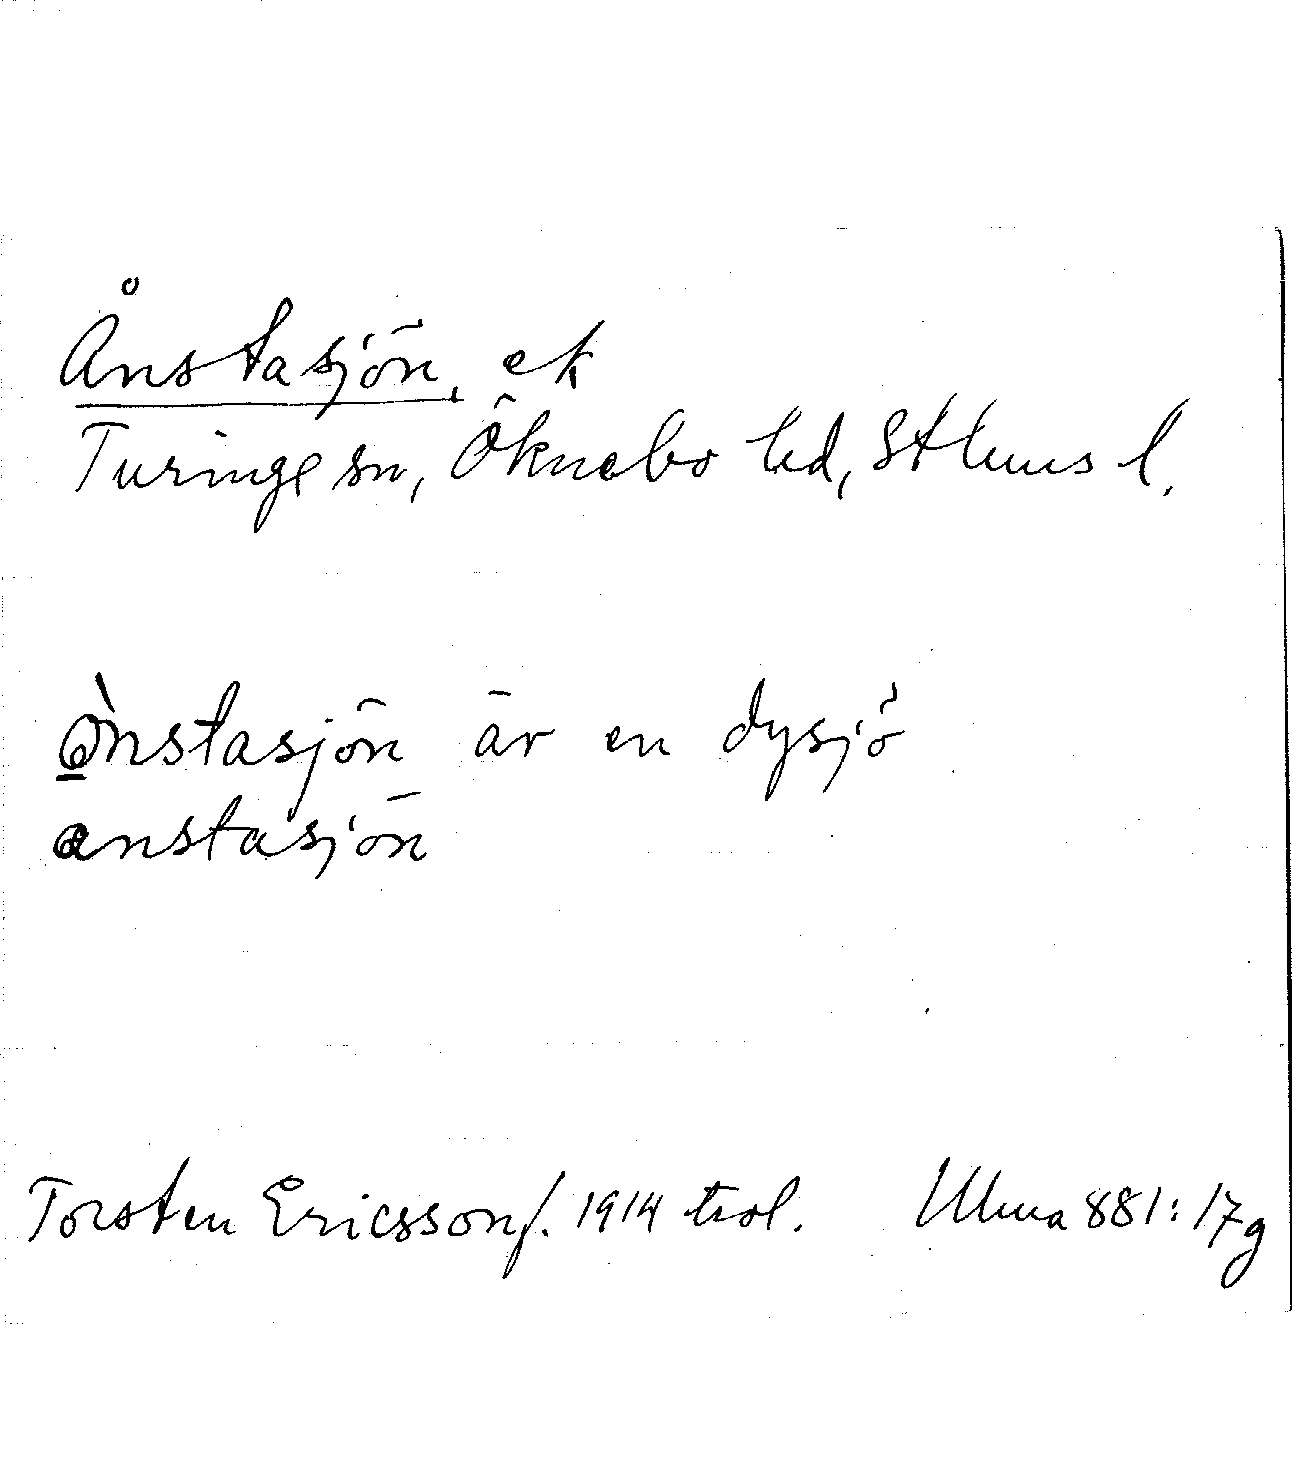 Ånstasjön, ek
Turinge sn, Öknebo hd, Sthms l.
ònstasjön är en dysjö
anstasjön
Torsten Ericsson f. 1914 trol. Ulma 881:17g